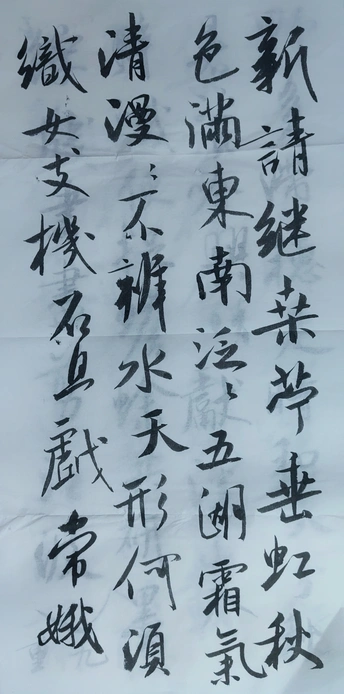 新請継桑苧垂虹秋
色滿東南泛〻五湖霜氣
清漫〻不辨水天形何須
織女支機石且戲常娥